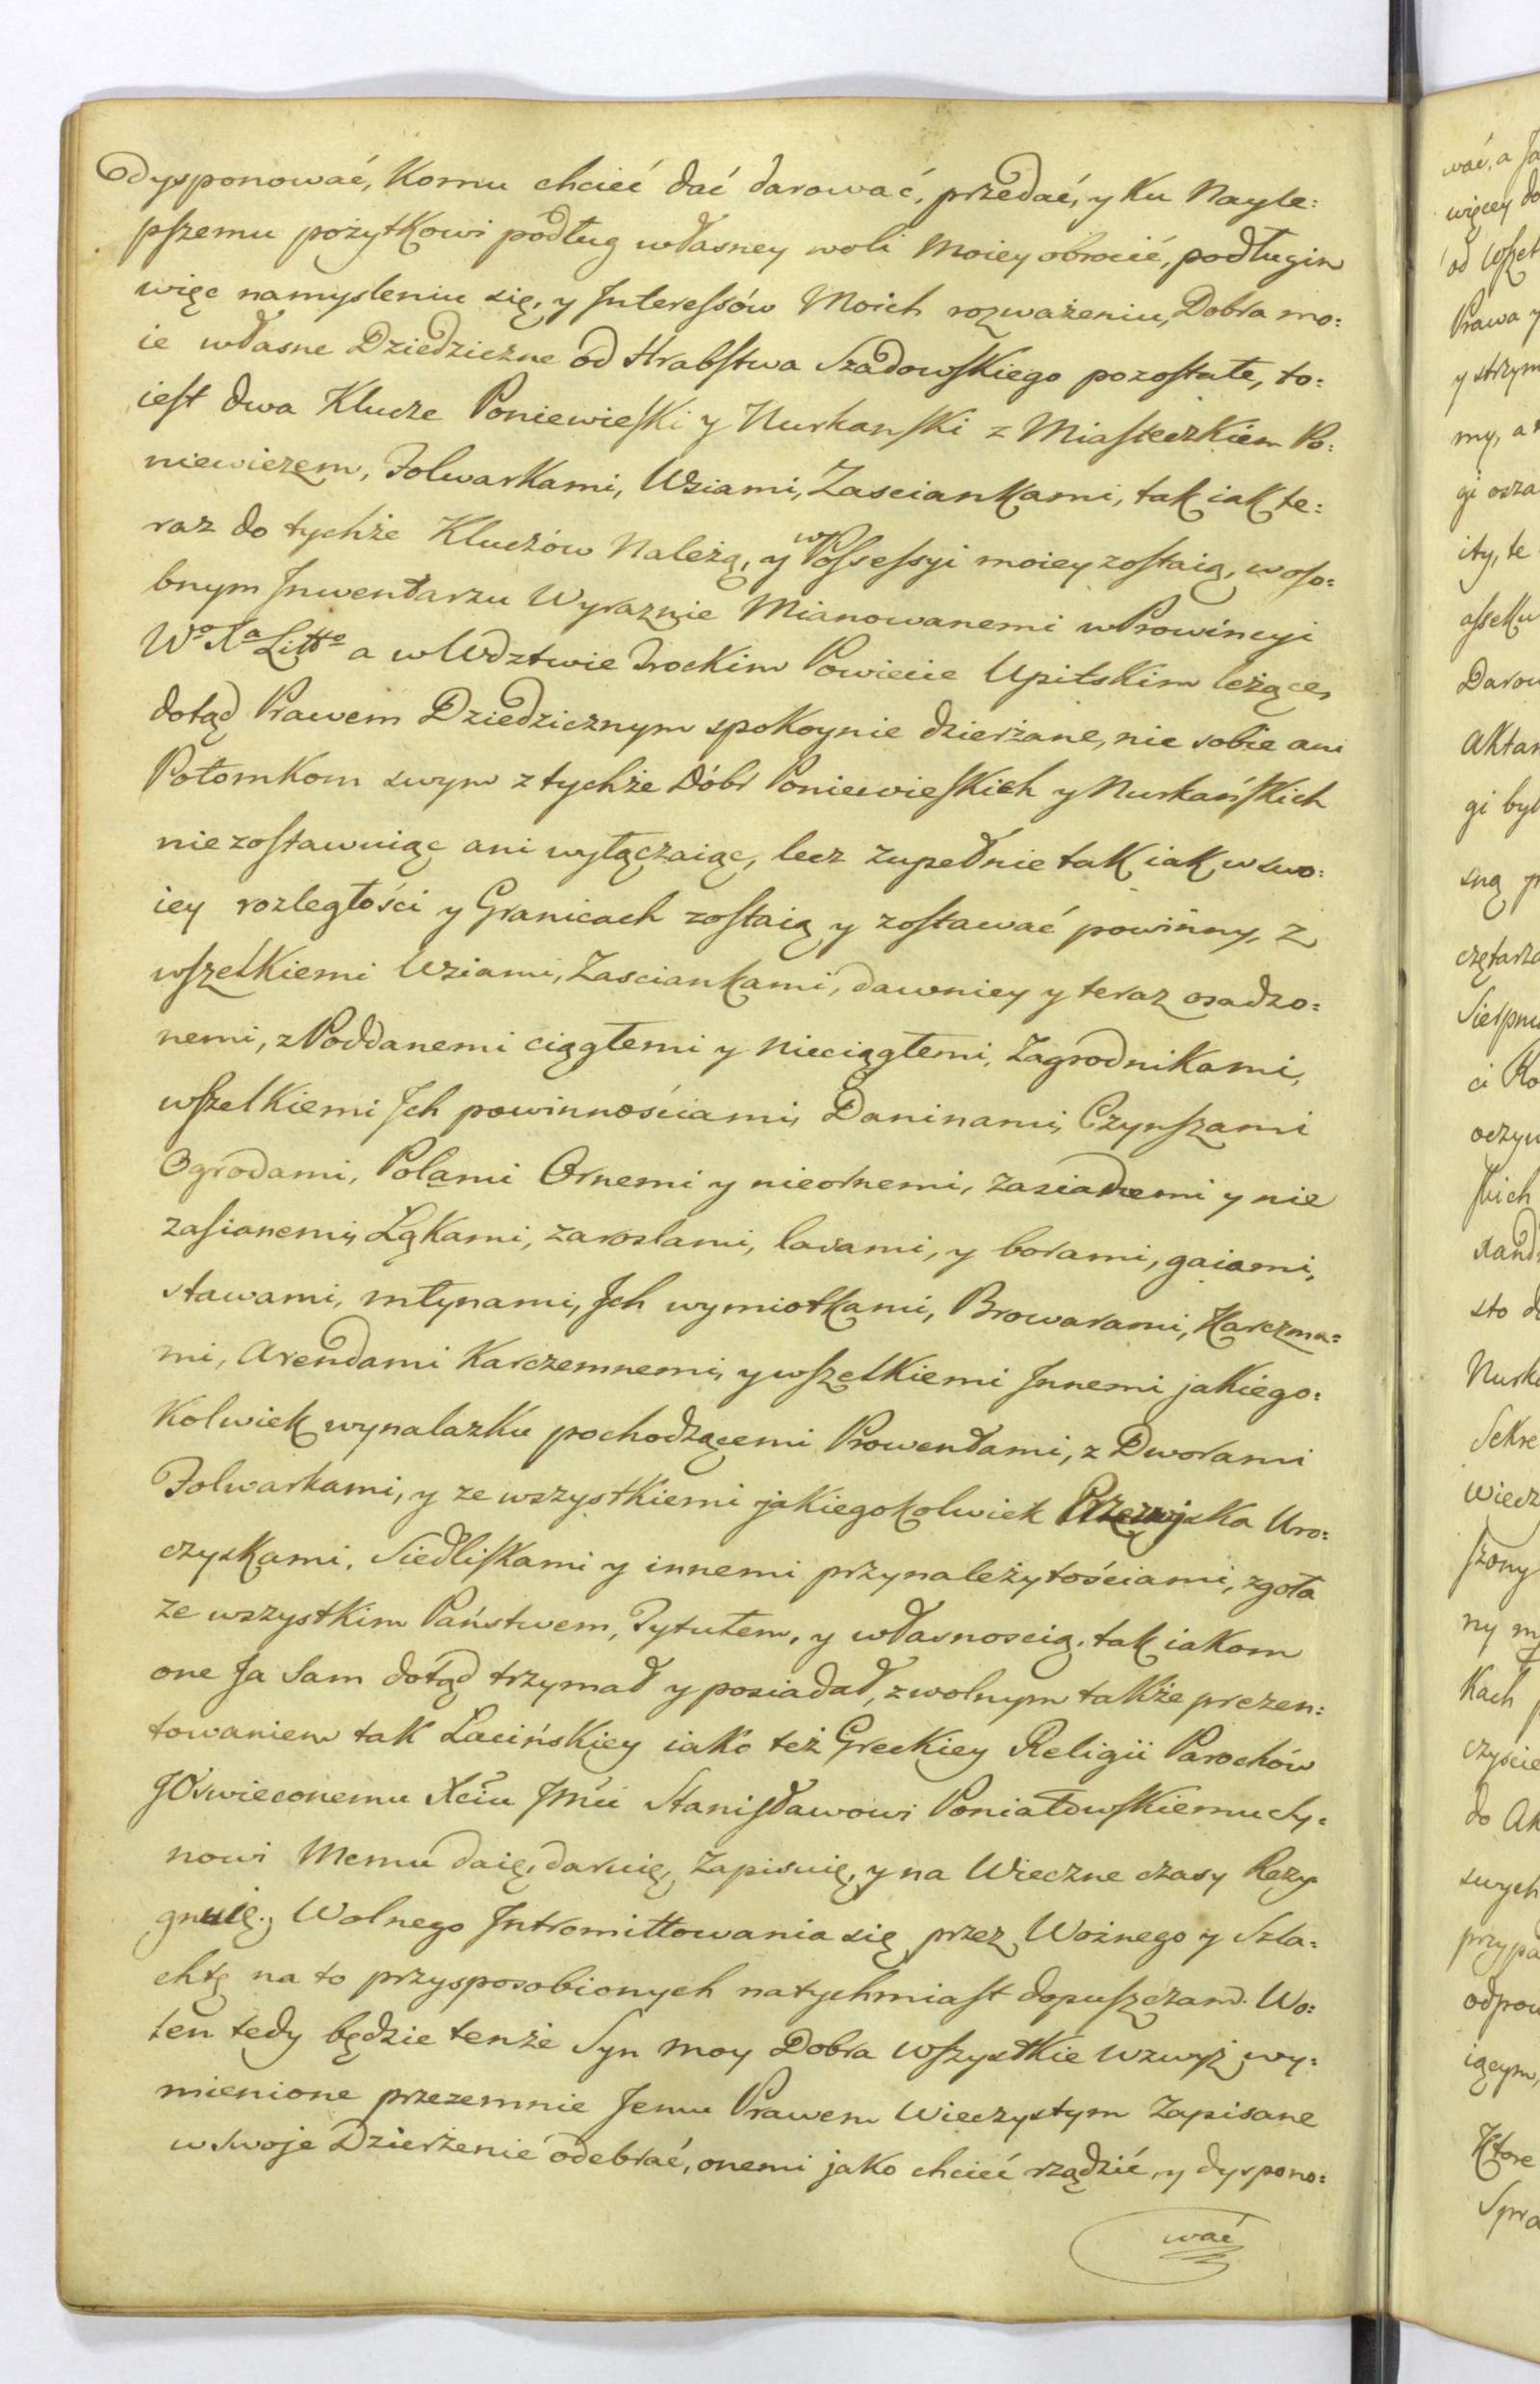 Dysponować, Komu chcieć dać darować, przedać, y Ku Nayle:
pszemu pożytkowi podług własney woli Moiey obrocić, podługim
więc namysleniu się, y Interessów Moich rozważeniu, Dobra mo:
ie własne Dziedziczne od Hrabstwa Szadowskiego pozostałe, to:
iest dwa Klucze Poniewieski y Nurkanski z Miasteczkiem Po:
niewiezem, Folwarkami, Wsiami, Zasciankami, tak iak te:
raz do tychże Kluczów Należą, y w Possessyi moiey zostaią, w oso:
bnym Inwentarzu Wyraznie Mianowanemi w Prowincyi
Wo Xa Litto a w Wdztwie Trockim Powiecie Upitskim leżące,
dotąd Prawem Dziedzicznym spokoynie dzierżane, nic sobie ani
Potomkom swym z tychże Dóbr Poniewieskich y Nurkańskich
nie zostawuiąc ani wyłączaiąc, lecz zupełnie tak iak w swo:
iey rozległości y Granicach zostaią y zostawać powinny, z
wszelkiemi Wsiami, Zasciankami, dawniey y teraz osadzo:
nemi, z Poddanemi ciągłemi y Nieciągłemi, Zagrodnikami,
wszelkiemi Ich powinnościami, Daninami, Czynszami
Ogrodami, Polami Ornemi y nieornemi, zasianemi y nie
zasianemi, Łąkami, zaroslami, lasami, y borami, gaiami,
stawami, młynami, Ich wymiotkami, Browarami, Karczma:
mi, Arendami Karczemnemi, y wszelkiemi Innemi jakiego:
Kolwiek wynalazku pochodzącemi Prowentami, z Dworami
Folwarkami, y ze wszystkiemi jakiegokolwiek Przezwiska Uro:
czyskami, Siedliskami y innemi przynależytościami, zgoła
ze wszystkim Państwem, Tytułem, y własnoscią, tak iakom
one Ja Sam dotąd trzymał y posiadał, z wolnym także prezen:
towaniem tak Łacińskiey iako też Greckiey Religii Parochów
JOswieconemu Xciu Jmći Stanisławowi Poniatowskiemu Sy:
nowi Memu daię, daruię, Zapisuię, y na Wieczne czasy Rezy
gnuię; Wolnego Intromittowania się przez Woźnego y Szla:
chtę na to przysposobionych natychmiast dopuszczam. Wo:
len tedy będzie tenże Syn moy Dobra wszystkie wzwyż wy:
mienione przezemnie Jemu Prawem Wieczystym Zapisane
w Swoje Dzierżenie odebrać, onemi jako chcieć rządzić, y dyspono:
wać